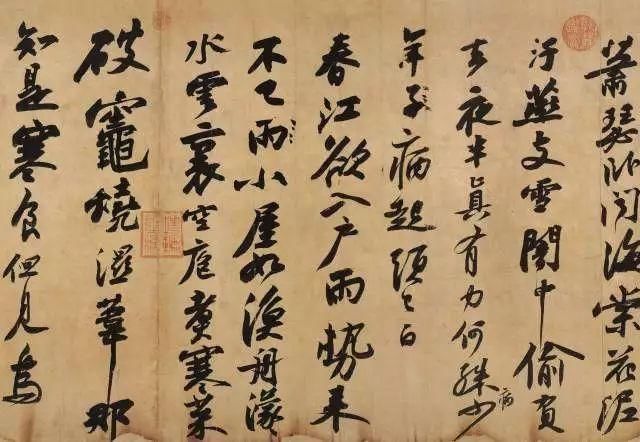 蕭瑟卧聞海棠花泥
汙燕支雪闇中偷負
去夜半真有力何殊病少
年子病起頭已白
春江欲入戶雨勢来
不已雨小屋如漁舟濛
水雲裏空庖煑寒菜
破竈燒濕葦那
知是寒食但見烏